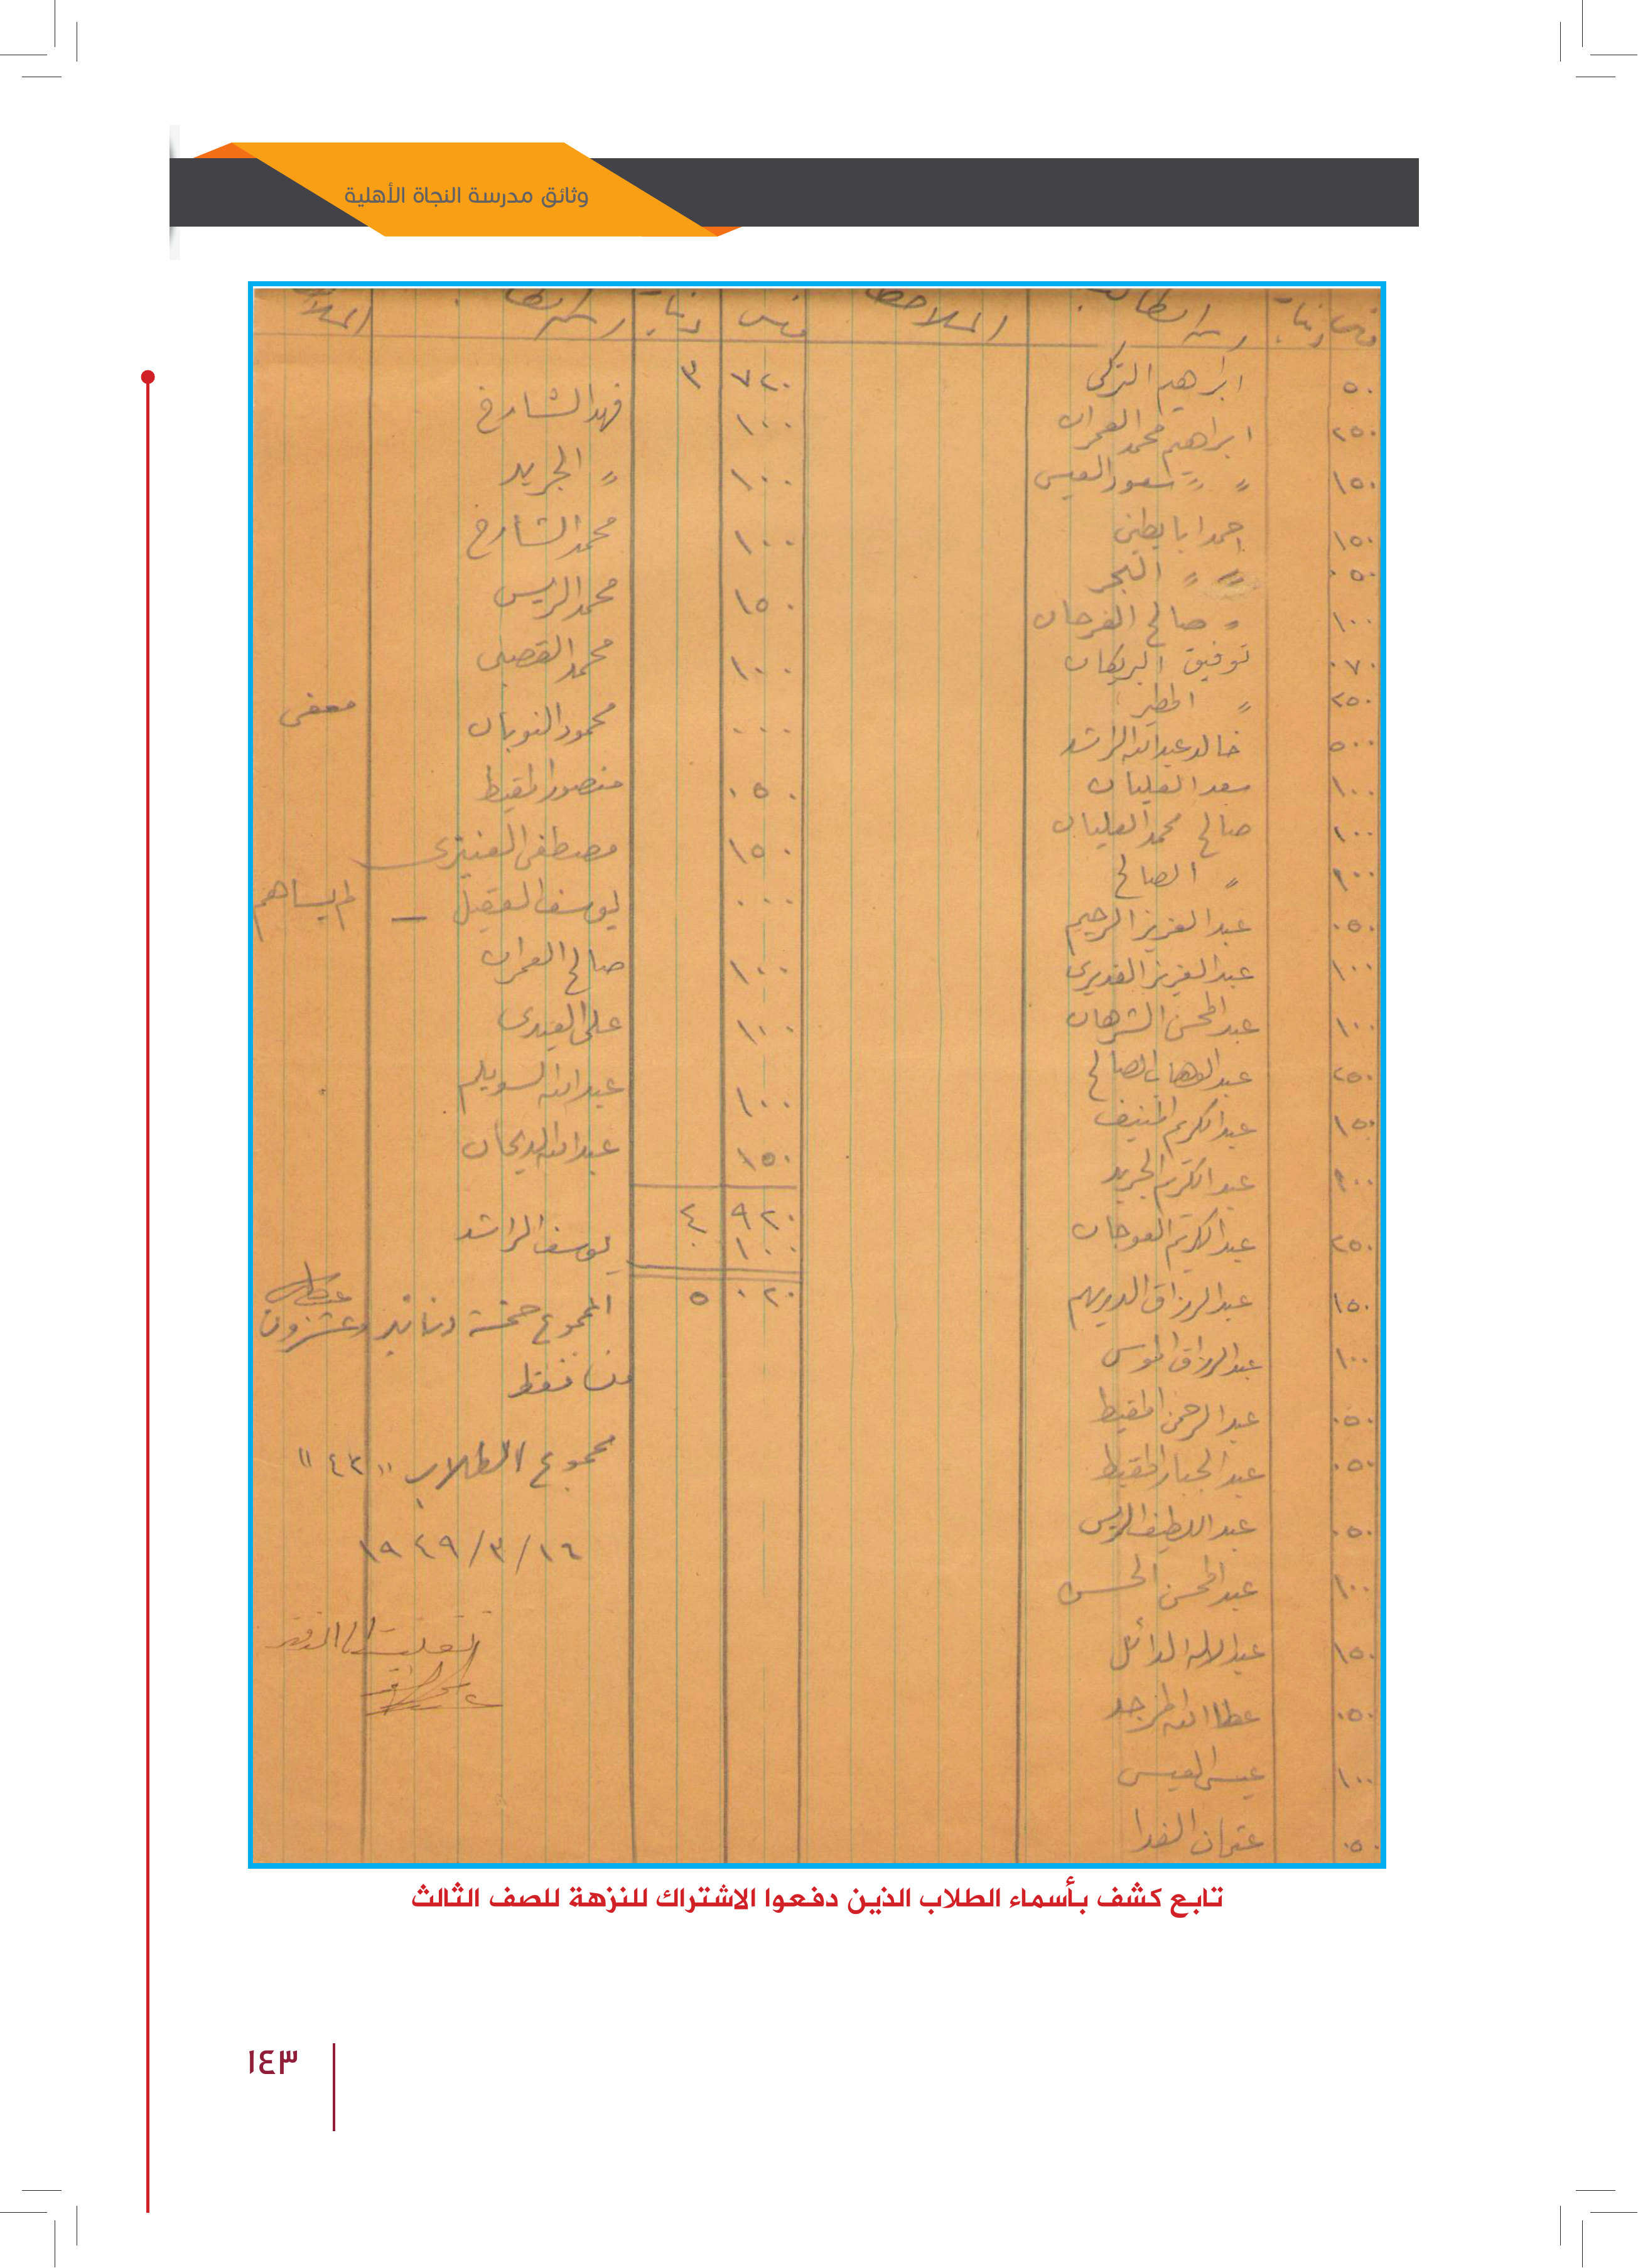 وثائق مدرسة النجاة الأهلية
فلس دنانير اسم الطالب الملاحظات فلس دنانير اسم الطالب
٥٠ ابراهيم التركى
٢٥٠ ابراهيم محمد العمران
١٥٠ " " سعود العيسى
١٥٠ احمد ابا بطين
٠٥٠ " " البحر
١٠٠ " صالح الفرحان
٠٧٠ توفيق البريكان
٢٥٠ " المطير
٥٠٠ خالد عبدالله الراشد
١٠٠ سعد العليان
١٠٠ صالح محمد العليان
١٠٠ " الصالح
٠٥٠ عبد العزيز الرحيم
١٠٠ عبد العزيز الغديرى
١٠٠ عبد المحسن الشرهان
٢٥٠ عبد الوهاب الصالح
١٥٠ عبد الكريم المنيف
١٠٠ عبد الكريم الجريد
٢٥٠ عبد الكريم العوجان
١٥٠ عبد الرزاق الدويهم
١٠٠ عبد الرزاق الموسى
٠٥٠ عبد الرحمن المقيط
٠٥٠ عبد الجبار المقيط
٠٥٠ عبد اللطيف الريس
١٠٠ عبد المحسن الحسن
١٥٠ عبد الاله الدائل
٠٥٠ عطا الله المزجد
١٠٠ عيسى العيسى
٠٥٠ عثمان الفدا
٧٢٠ ٣
١٠٠ فهد الشارخ
١٠٠ " الجريد
١٠٠ محمد الشارخ
١٥٠ محمد الريس
١٠٠ محمد القصبى
٠٠٠ محمود النوبان معفى
٠٥٠ منصور المقيط
١٥٠ مصطفى العنيزى
٠٠٠ يوسف العقيل — لم يساهم
١٠٠ صالح العمران
١٠٠ على العيدى
١٠٠ عبدالله السويلم
١٥٠ عبدالله الديحان
٩٢٠ ٤
١٠٠ يوسف الراشد
٠٢٠ ٥
المجموع خمسة دنانير وعشرون
فلسا فقط
مجموع الطلاب "٤٢"
١٦/٣/١٩٤٩
نقلت الى الدفتر
تابع كشف بأسماء الطلاب الذين دفعوا الاشتراك للنزهة للصف الثالث
١٤٣